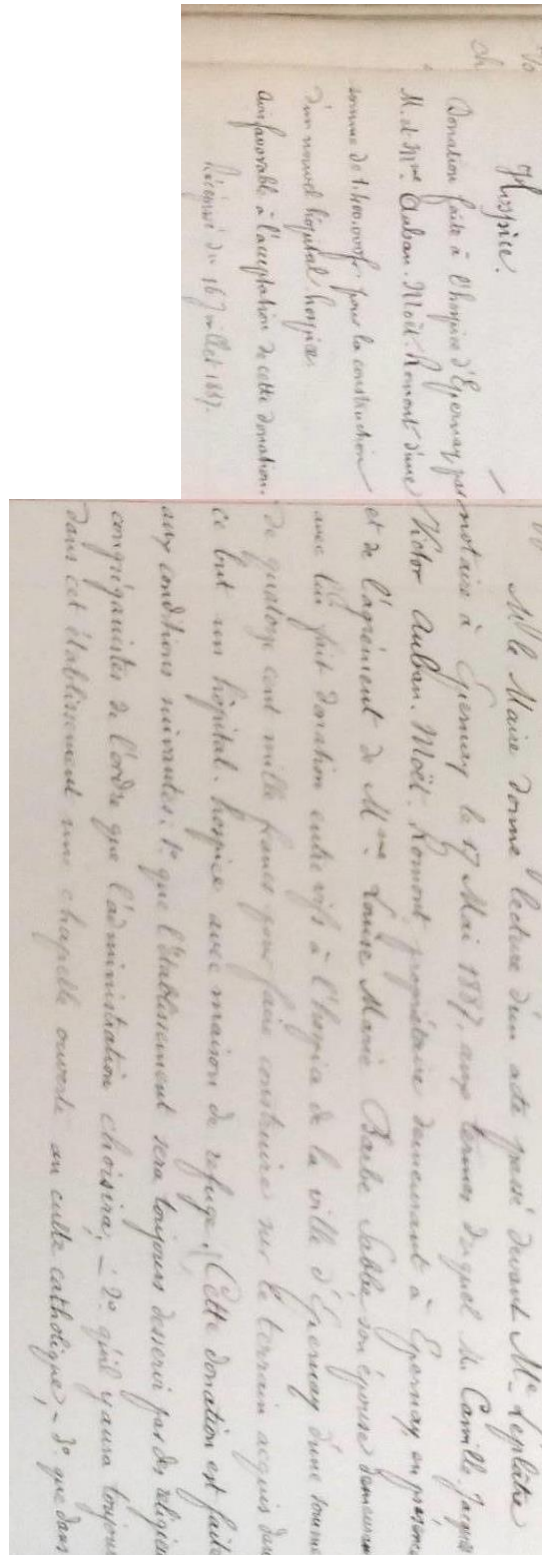 Hospice.
Donation faite à l'hospice d'Epernay par
M. et Mme Auban-Moët-Romont d'une
somme de 1.400.000f pour la construction
d'un nouvel hôpital hospice.
Avis favorable à l'acceptation de cette donation.
Récépissé du 16 juillet 1887.
Mr le Maire donne lecture d'un acte passé devant Me Leplâtre
notaire à Epernay le 17 Mai 1887, aux termes duquel M. Camille Jacques
Victor Auban-Moët-Romont propriétaire demeurant à Epernay, en présence
et de l'agrément de Mme Louise Marie Barbe son épouse demeurant
avec lui fait donation entre vifs à l'hospice de la ville d'Epernay d'une somme
de quatorze cent mille francs pour faire construire sur le terrain acquis dans
ce but un hôpital-hospice avec maison de refuge. Cette donation est faite
aux conditions suivantes: 1o que l'établissement sera toujours desservi par des religieuses
congréganistes de l'ordre que l'administration choisira; - 2o qu'il y aura toujours
dans cet établissement une chapelle ouverte au culte catholique; - 3o que dans